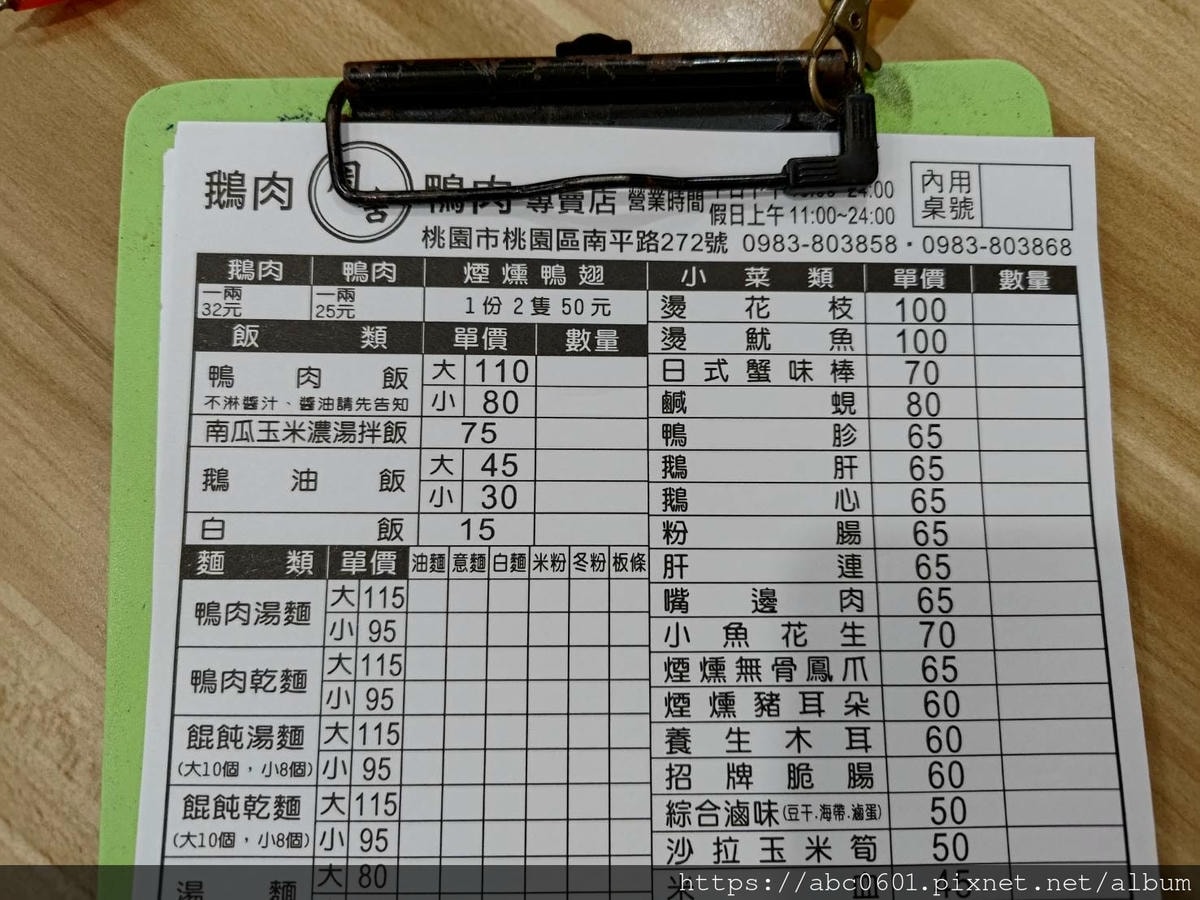 鵝肉 周吉 鴨肉 專賣店 營業時間 24:00
假日上午11:00~24:00
內用桌號
桃園市桃園區南平路272號 0983-803858・0983-803868
鵝肉 鴨肉 煙燻鴨翅
一兩32元 一兩25元 1份2隻50元
飯類 單價 數量
鴨肉飯 大 110
不淋醬汁、醬油請先告知 小 80
南瓜玉米濃湯拌飯 75
鵝油飯 大 45
小 30
白飯 15
麵類 單價 油麵 意麵 白麵 米粉 冬粉 板條
鴨肉湯麵 大 115
小 95
鴨肉乾麵 大 115
小 95
餛飩湯麵 大 115
(大10個,小8個) 小 95
餛飩乾麵 大 115
(大10個,小8個) 小 95
湯麵 大 80
小菜類 單價 數量
燙花枝 100
燙魷魚 100
日式蟹味棒 70
鹹蜆 80
鴨胗 65
鵝肝 65
鵝心 65
粉腸 65
肝連 65
嘴邊肉 65
小魚花生 70
煙燻無骨鳳爪 65
煙燻豬耳朵 60
養生木耳 60
招牌脆腸 60
綜合滷味(豆干.海帶.滷蛋) 50
沙拉玉米筍 50
米血 45
https://abc0601.pixnet.net/album